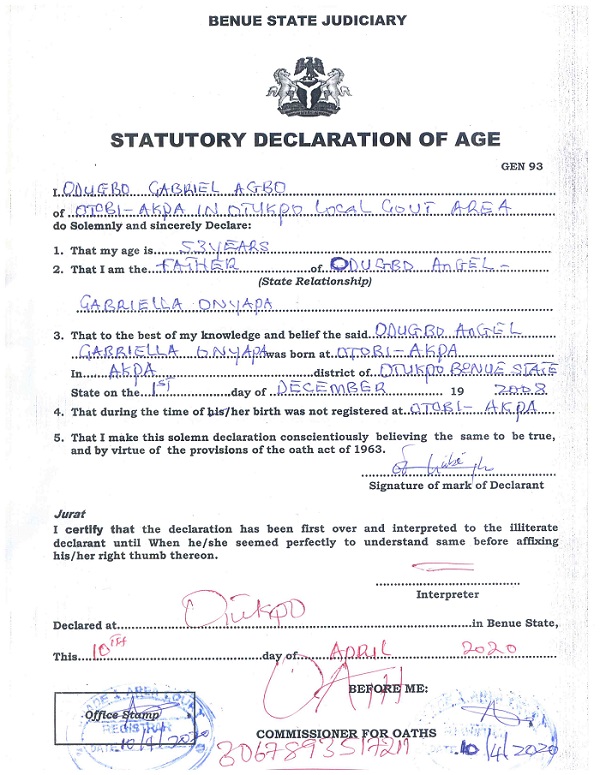 BENUE STATE JUDICIARY
STATUTORY DECLARATION OF AGE
GEN 93
I, ODUGBO GABRIEL AGBO
of OTOBI-AKPA IN OTUKPO Local GOUT AREA
do Solemnly and sincerely Declare:
1. That my age is 53 YEARS
2. That I am the FATHER of ODUGBO AnGEL-
(State Relationship)
GABRIELLA ONYAPA
3. That to the best of my knowledge and belief the said ODUGBO AnGEL
GABRIELLA ONYAPA was born at OTOBI-AKPA
In AKPA district of OTUKPO BENUE STATE
State on the 1ST day of DECEMBER 19 2008
4. That during the time of his/her birth was not registered at OTOBI-AKPA
5. That I make this solemn declaration conscientiously believing the same to be true,
and by virtue of the provisions of the oath act of 1963.
Signature of mark of Declarant
Jurat
I certify that the declaration has been first over and interpreted to the illiterate
declarant until When he/she seemed perfectly to understand same before affixing
his/her right thumb thereon.
Interpreter
Declared at Otukpo in Benue State,
This 10TH day of APRIL 2020
BEFORE ME:
Office Stamp
REGISTRAR
DATE 10/4/2020
COMMISSIONER FOR OATHS
10/4/2020